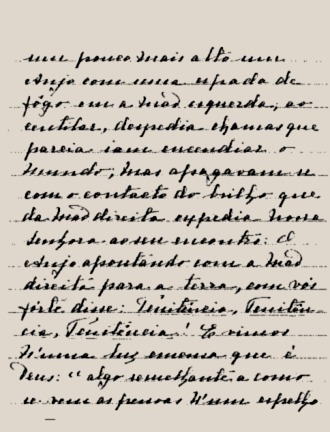 um pouco mais alto um
Anjo com uma espada de
fôgo em a mão esquerda; ao
centilar, despedia chamas que
parecia iam encendiar o
mundo; mas apagavam-se
com o contacto do brilho que
da mão direita expedia Nossa
Senhora ao seu encontro: O
Anjo apontando com a mão
direita para a terra, com voz
forte disse: Penitência, Peniten-
cia, Penitência! E vimos
n'uma luz emensa que é
Deus: "algo semelhante a como
se vem as pessoas n'um espelho